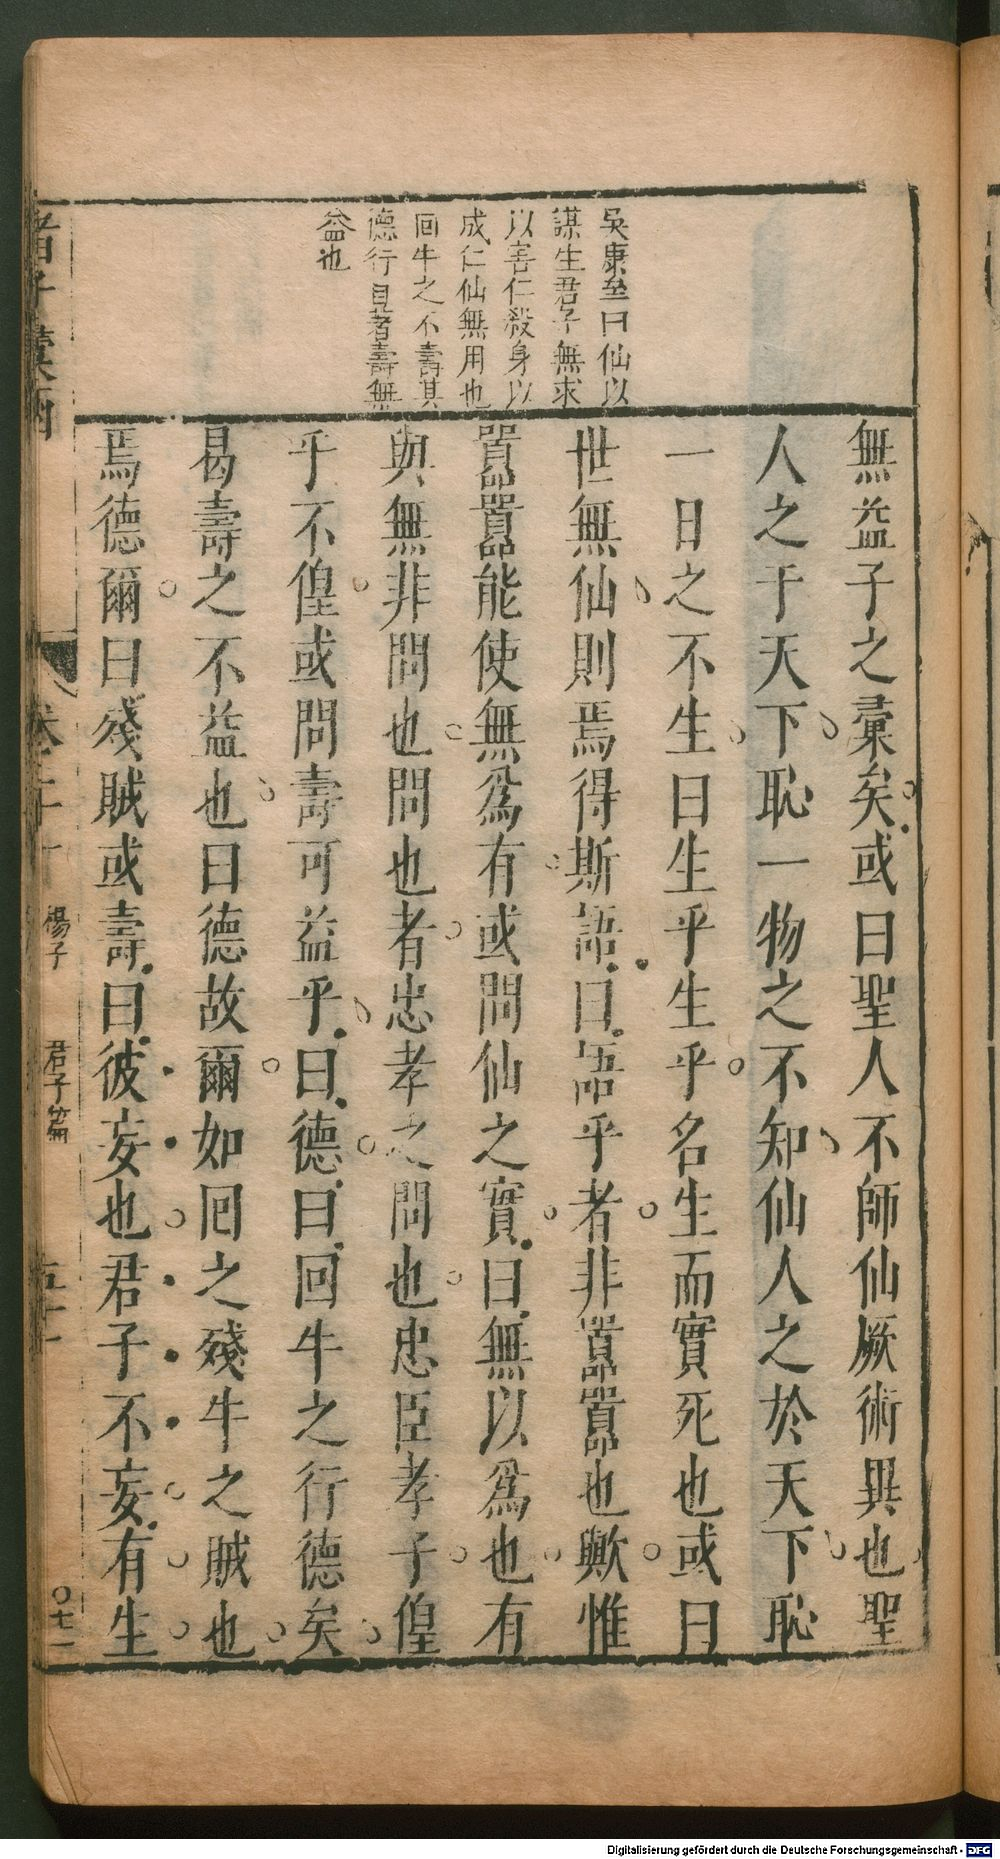 吳康垒曰仙以
謀生君子無求
以害仁殺身以
成仁仙無用也
回牛之不壽其
德行自若壽無
益也
無益子之彚矣或曰聖人不師仙厥術異也聖
人之于天下恥一物之不知仙人之於天下恥
一日之不生曰生乎生乎名生而實死也或曰
世無仙則焉得斯語曰語乎者非嚚嚚也歟惟
嚚嚚能使無爲有或問仙之實曰無以爲也有
與無非問也問也者忠孝之問也忠臣孝子偟
乎不偟或問壽可益乎曰德曰回牛之行德矣
曷壽之不益也曰德故爾如回之殘牛之賊也
焉德爾曰殘賊或壽曰彼妄也君子不妄有生
諸子彚函
楊子
君子篇
Digitalisierung gefördert durch die Deutsche Forschungsgemeinschaft - DFG